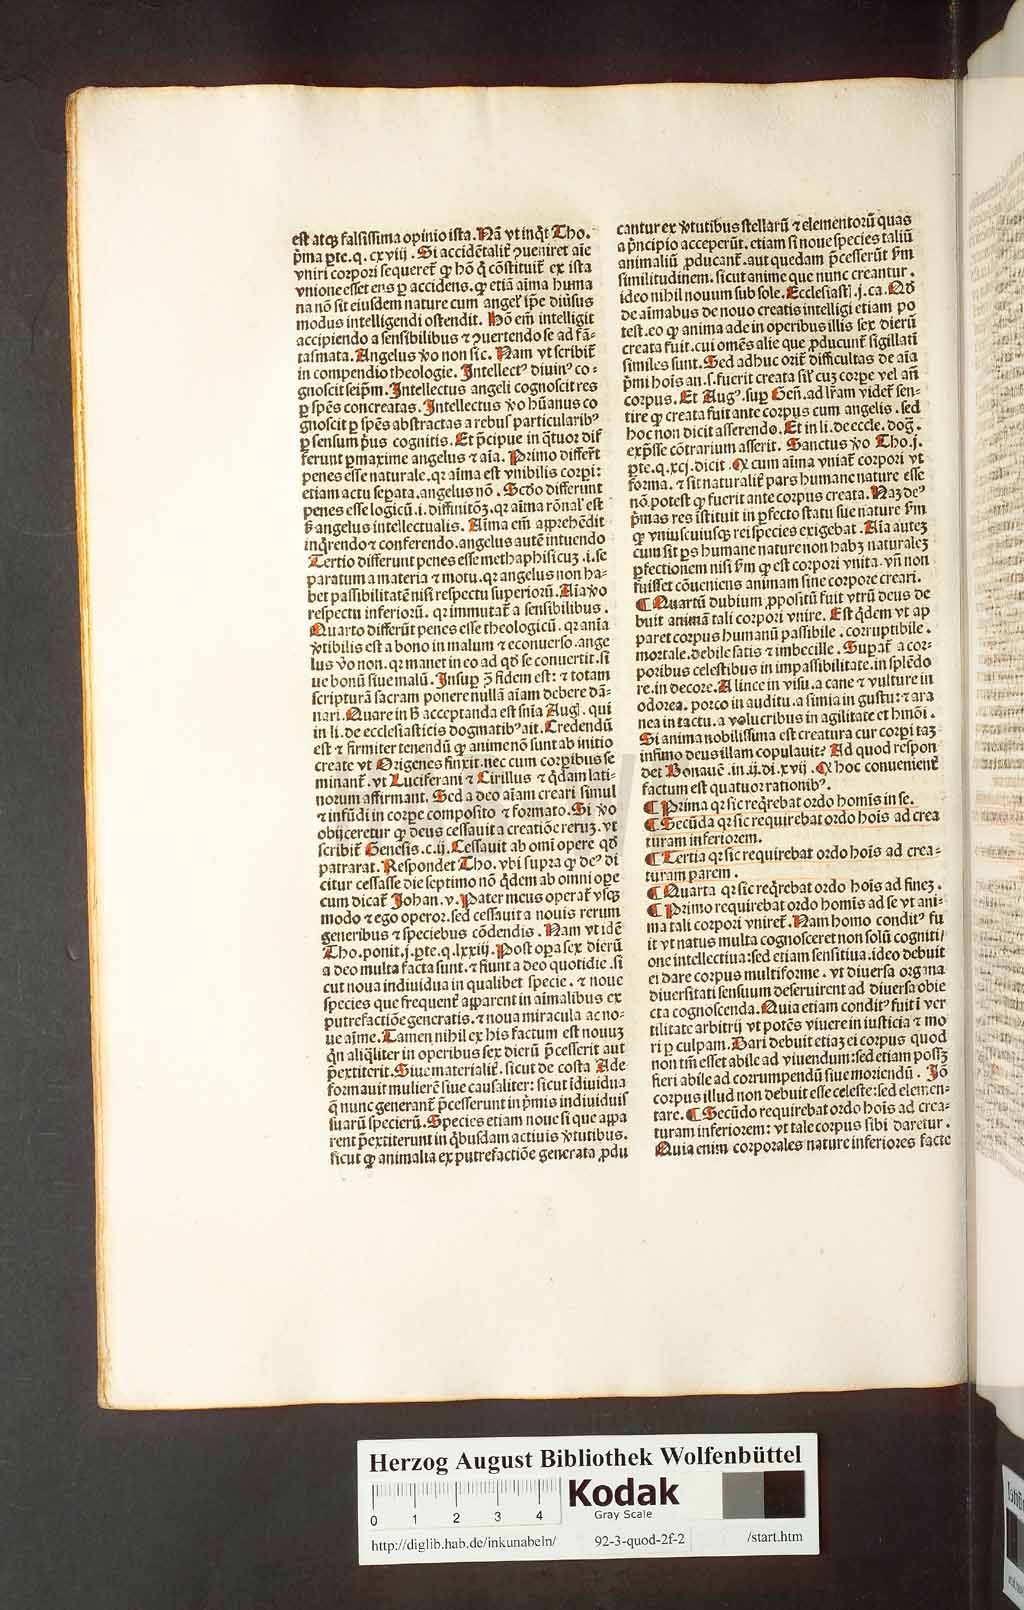 est atqȝ falsissima opinio ista. Nā vt inq̄t Tho.
p̄ma ꝑte. q. cxviij. Si accidētalit̄ ꝯueniret aīe
vniri corpori sequeret̄ ꝙ hō q̄ cōstituit̄ ex ista
vnione esset ens ꝑ accidens. ꝙ etiā aīma huma
na nō sit eiusdem nature cum angel̄ ip̄e diūsus
modus intelligendi ostendit. Hō em̄ intelligit
accipiendo a sensibilibus ⁊ ꝯuertendo se ad fā-
tasmata. Angelus v̄o non sic. Nam vt scribit̄
in compendio theologie. Intellectꝰ diuinꝰ co-
gnoscit seip̄m. Intellectus angeli cognoscit res
ꝑ sp̄es concreatas. Intellectus v̄o hūanus co
gnoscit ꝑ sp̄es abstractas a rebus particularibꝰ
ꝑ sensum p̄us cognitis. Et p̄cipue in q̄tuor dif
ferunt ꝑmaxime angelus ⁊ aīa. Primo differt̄
penes esse naturale. qꝛ aīma est vnibilis corpi:
etiam actu seꝑata. angelus nō. Scd̄o differunt
penes esse logicū. i. diffinitōȝ. qꝛ aīma rōnal̄ est
ß angelus intellectualis. Aīma em̄ app̄rehēdit
inq̄rendo ⁊ conferendo. angelus autē intuendo
Tertio differunt penes esse methaphisicuȝ .i. se
paratum a materia ⁊ motu. qꝛ angelus non ha-
bet passibilitatē nisi respectu superiorū. Aīa v̄o
respectu inferiorū. qꝛ immutat̄ a sensibilibus.
Quarto differūt penes esse theologicū. qꝛ anīa
v̄tibilis est a bono in malum ⁊ econuerso. ange
lus v̄o non. qꝛ manet in eo ad qd̄ se conuertit. si
ue bonū siue malū. Insup ꝯ̄ fidem est: ⁊ totam
scripturā sacram ponere nullā aīam debere dā-
nari. Quare in ß acceptanda est snīa Aug. qui
in li. de ecclesiasticis dogmatibꝰ ait. Credendū
est ⁊ firmiter tenendū ꝙ anime nō sunt ab initio
create vt Origenes finxit. nec cum corꝑibus se
minant̄. vt Luciferani ⁊ Cirillus ⁊ q̄dam lati-
norum affirmant. Sed a deo aīam creari simul
⁊ infūdi in corꝑe composito ⁊ formato. Si v̄o
obijceretur ꝙ deus cessauit a creatiōe reruȝ. vt
scribit̄ Genesis. c. ij. Cessauit ab omī opere qd̄
patrarat. Respondet Tho. vbi supra ꝙ deꝰ di
citur cessasse die septimo nō q̄dem ab omni oꝑe
cum dicat̄ Johan. v. Pater meus operat̄ vsqȝ
modo ⁊ ego operor. sed cessauit a nouis rerum
generibus ⁊ speciebus cōdendis. Nam vt idē
Tho. ponit. j. ꝑte. q. lxxiij. Post oꝑa sex dierū
a deo multa facta sunt. ⁊ fiunt a deo quotidie. si
cut noua indiuidua in qualibet specie. ⁊ noue
species que frequent̄ apparent in aīmalibus ex
putrefactiōe generatis. ⁊ noua miracula ac no-
ue aīme. Tamen nihil ex his factum est nouuȝ
q̄n aliq̄liter in operibus sex dierū p̄cesserit aut
p̄extiterit. Siue materialit̄. sicut de costa Ade
formauit mulierē siue causaliter: sicut īdiuidua
q̄ nunc generant̄ p̄cesserunt in p̄mis indiuiduis
suarū specierū. Species etiam noue si que appa
rent p̄extiterunt in q̄busdam actiuis v̄tutibus.
sicut ꝙ animalia ex putrefactiōe generata ꝓdu
cantur ex v̄tutibus stellarū ⁊ elementorū quas
a p̄ncipio acceperūt. etiam si noue species taliū
animaliū ꝓducant̄. aut quedam p̄cesserūt ẜm
similitudinem. sicut anime que nunc creantur.
ideo nihil nouum sub sole. Ecclesiast̄. j. ca. Qd̄
de aīmabus de nouo creatis intelligi etiam po
test. eo ꝙ anima ade in operibus illis sex dierū
creata fuit. cui omēs alie que ꝓducunt̄ sigillatī
similes sunt. Sed adhuc orit̄ difficultas de aīa
p̄mi hoīs an. s. fuerit creata sil̄ cuȝ corꝑe vel an̄
corpus. Et Augꝰ. suꝑ Gen̄. ad lr̄am videt̄ sen-
tire ꝙ creata fuit ante corpus cum angelis. sed
hoc non dicit asserendo. Et in li. de eccle. doḡ.
exp̄sse cōtrarium asserit. Sanctus v̄o Tho. j.
ꝑte. q. xcj. dicit. Q cum aīma vniat̄ corpori vt
forma. ⁊ sit naturalit̄ pars humane nature esse
nō potest ꝙ fuerit ante corpus creata. Naȝ deꝰ
p̄mas res īstituit in ꝑfecto statu sue nature ẜm
ꝙ vniuscuiusqȝ rei species exigebat. Aīa auteȝ
cum sit ꝑs humane nature non habȝ naturaleȝ
ꝑfectionem nisi ẜm ꝙ est corpori vnita. vn̄ non
fuisset cōueniens animam sine corpore creari.
¶ Quartū dubium ꝓpositū fuit vtrū deus de
buit animā tali corpori vnire. Est q̄dem vt ap
paret corpus humanū passibile. corruptibile.
mortale. debile satis ⁊ imbecille. Suꝑat̄ a cor-
poribus celestibus in impassibilitate. in splēdo
re. in decore. A lince in visu. a cane ⁊ vulture in
odorea. porco in auditu. a simia in gustu: ⁊ ara
nea in tactu. a volucribus in agilitate et hmōi.
Si anima nobilissima est creatura cur corpi taȝ
infimo deus illam copulauit? Ad quod respon
det Bonauē. in. ij. di. xvij. Q hoc conuenient̄
factum est quatuor rationibꝰ.
¶ Prima qꝛ sic req̄rebat ordo homīs in se.
¶ Secūda qꝛ sic requirebat ordo hoīs ad crea
turam inferiorem.
¶ Tertia qꝛ sic requirebat ordo hoīs ad crea-
turam parem.
¶ Quarta qꝛ sic req̄rebat ordo hoīs ad fineȝ.
¶ Primo requirebat ordo homīs ad se vt ani-
ma tali corpori vniret̄. Nam homo conditꝰ fu
it vt natus multa cognosceret non solū cogniti
one intellectiua: sed etiam sensitiua. ideo debuit
ei dare corpus multiforme. vt diuersa organa
diuersitati sensuum deseruirent ad diuersa obie
cta cognoscenda. Quia etiam conditꝰ fuit ī ver
tilitate arbitrij vt potēs viuere in iusticia ⁊ mo
ri ꝑ culpam. Dari debuit etiaȝ ei corpus quod
non tm̄ esset abile ad viuendum: sed etiam possȝ
fieri abile ad corrumpendū siue moriendū. Iō
corpus illud non debuit esse celeste: sed elemen-
tare. ¶ Secūdo requirebat ordo hoīs ad crea-
turam inferiorem: vt tale corpus sibi daretur.
Quia enim corporales nature inferiores facte
Herzog August Bibliothek Wolfenbüttel
0 1 2 3 4
Kodak
Gray Scale
http://diglib.hab.de/inkunabeln/ 92-3-quod-2f-2 /start.htm